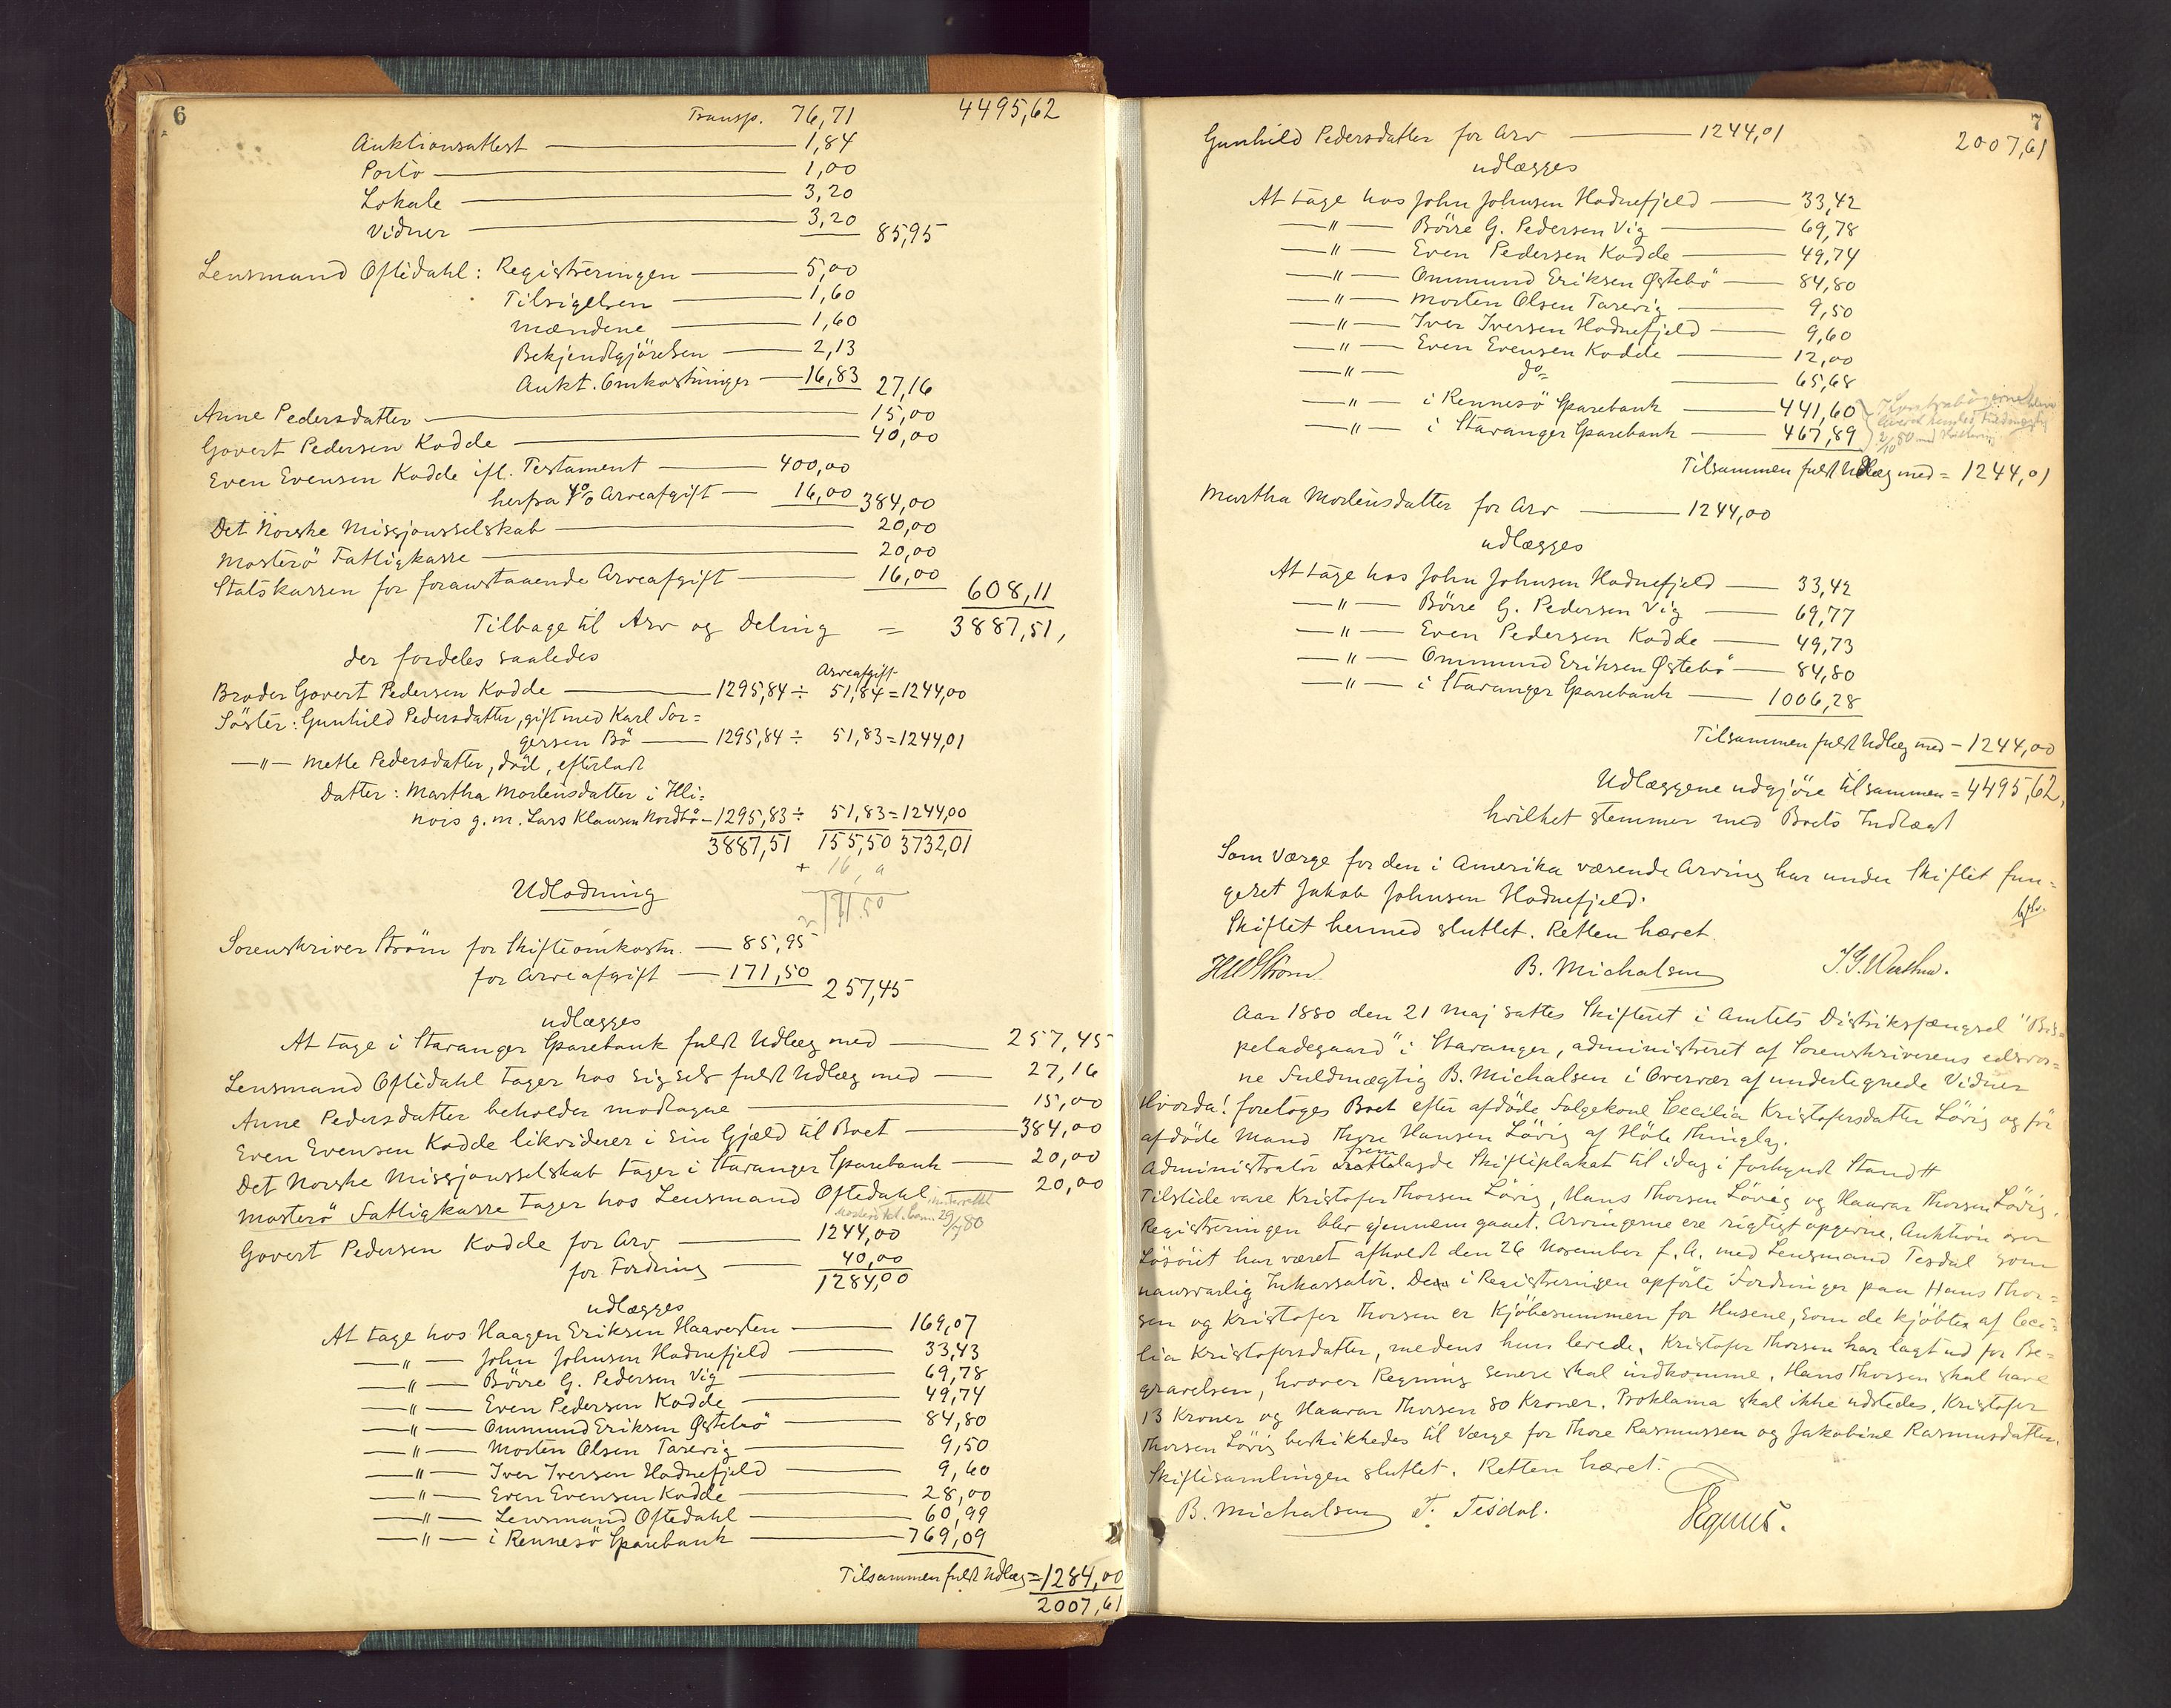 6
Transp. 76,71 4495,62
Auktionsattest 1,84
Porto 1,00
Lokale 3,20
Vidner 3,20 85,95
Lensmand Oftedahl: Registreringen 5,00
Tilsigelsen 1,60
Mændene 1,60
Bekjendtgjörelsen 2,13
Aukt. Omkostninger 16,83 27,16
Anne Pedersdatter 15,00
Govert Pedersen Kodde 40,00
Even Evensen Kodde ifl. Testament 400,00
herfra 4% Arveafgift 16,00 384,00
Det Norske Missjonsselskab 20,00
Mosterö Fattigkasse 20,00
Statskassen for foranstaaende Arveafgift 16,00 608,11
Tilbage til Arv og Deling = 3887,51,
der fordeles saaledes
Arveafgift
Broder Govert Pedersen Kodde 1295,84 ÷ 51,84 = 1244,00
Söster: Gunhild Pedersdatter, gift med Karl Tor=
gersen Bö 1295,84 ÷ 51,83 = 1244,01
—"— Mette Pedersdatter, död, efterladt
Datter: Martha Mortensdatter i Illi=
nois g. m. Lars Klausen Nordbö 1295,83 ÷ 51,83 = 1244,00
3887,51 155,50 3732,01
+ 16, "
171,50
Udlodning
Sorenskriver Ström for Skifteomkostn. 85,95
for Arveafgift 171,50 257,45
udlægges
At tage i Stavanger Sparebank fuldt Udlæg med 257,45
Lensmand Oftedahl tager hos sig selv fuldt Udlæg med 27,16
Anne Pedersdatter beholder modtagne 15,00
Even Evensen Kodde likviderer i sin Gjæld til Boet 384,00
Det Norske Missjonsselskab tager i Stavanger Sparebank 20,00
Mosterö Fattigkasse tager hos Lensmand Oftedahl 20,00
Govert Pedersen Kodde for Arv 1244,00
for Fordring 40,00
1284,00
udlægges
At tage hos Haagen Eriksen Haavesten 169,07
—"— John Johnsen Hodnefjeld 33,43
—"— Börre G. Pedersen Vig 69,78
—"— Even Pedersen Kodde 49,74
—"— Ommund Eriksen Østebö 84,80
—"— Morten Olsen Tarevig 9,50
—"— Iver Iversen Hodnefjeld 9,60
—"— Even Evensen Kodde 28,00
—"— Lensmand Oftedahl 60,99
—"— i Rennesö Sparebank 769,09
Tilsammen fuldt Udlæg = 1284,00
2007,61
7
Gunhild Pedersdatter for Arv 1244,01 2007,61
udlægges
At tage hos John Johnsen Hodnefjeld 33,42
—"— Börre G. Pedersen Vig 69,78
—"— Even Pedersen Kodde 49,74
—"— Ommund Eriksen Østebö 84,80
—"— Morten Olsen Tarevig 9,50
—"— Iver Iversen Hodnefjeld 9,60
—"— Even Evensen Kodde 12,00
—"— do 65,68
—"— i Rennesö Sparebank 441,60
—"— i Stavanger Sparebank 467,89
Tilsammen fuldt Udlæg med = 1244,01
Martha Mortensdatter for Arv 1244,00
udlægges
At tage hos John Johnsen Hodnefjeld 33,42
—"— Börre G. Pedersen Vig 69,77
—"— Even Pedersen Kodde 49,73
—"— Ommund Eriksen Østebö 84,80
—"— i Stavanger Sparebank 1006,28
Tilsammen fuldt Udlæg med - 1244,00
Udlæggene udgjöre tilsammen = 4495,62,
hvilket stemmer med Boets Indtægt
Som Værge for den i Amerika værende Arving har under Skiftet fun=
geret Jakob Johnsen Hodnefjeld.
Skiftet hermed sluttet. Retten hævet.
HW Ström. B. Michalsen
Aar 1880 den 21 Maj sattes Skifteret i Amtets Distriksfængsel "Bis=
peladegaard" i Stavanger, administreret af Sorenskriverens edsvor=
ne Fuldmægtig B. Michalsen i Overvær af undertegnede Vidner
Hvorda! foretoges Boet efter afdöde Folgekone Cecilia Kristofersdatter Lövig og för
afdöde Mand Thore Hansen Lövig af Höle Thinglag.
Administrator fremlagde Skifteplakat til idag i forkyndt Stand
Tilstede vare Kristofer Thorsen Lövig, Hans Thorsen Lövig og Haavar Thorsen Lövig.
Registreringen blev gjennemgaaet. Arvingerne ere rigtigt opgivne. Auktion over
Lösöret har været afholdt den 26 November f. A. med Lensmand Tesdal som
uansvarlig Inkassator. De i Registreringen opförte Fordringer paa Hans Thor=
sen og Kristofer Thorsen er Kjöbesummen for Husene, som de kjöbte af Ceci=
lia Kristofersdatter, medens hun levede. Kristofer Thorsen har lagt ud for Be=
gravelsen, hvorover Regning senere skal indkomme. Hans Thorsen skal have
13 Kroner og Haavar Thorsen 80 Kroner. Proklama skal ikke udstedes. Kristofer
Thorsen Lövig beskikkedes til Værge for Thore Rasmussen og Jakobine Rasmusdatter.
Skiftesamlingen sluttet. Retten hævet.
B. Michalsen T. Tesdal.